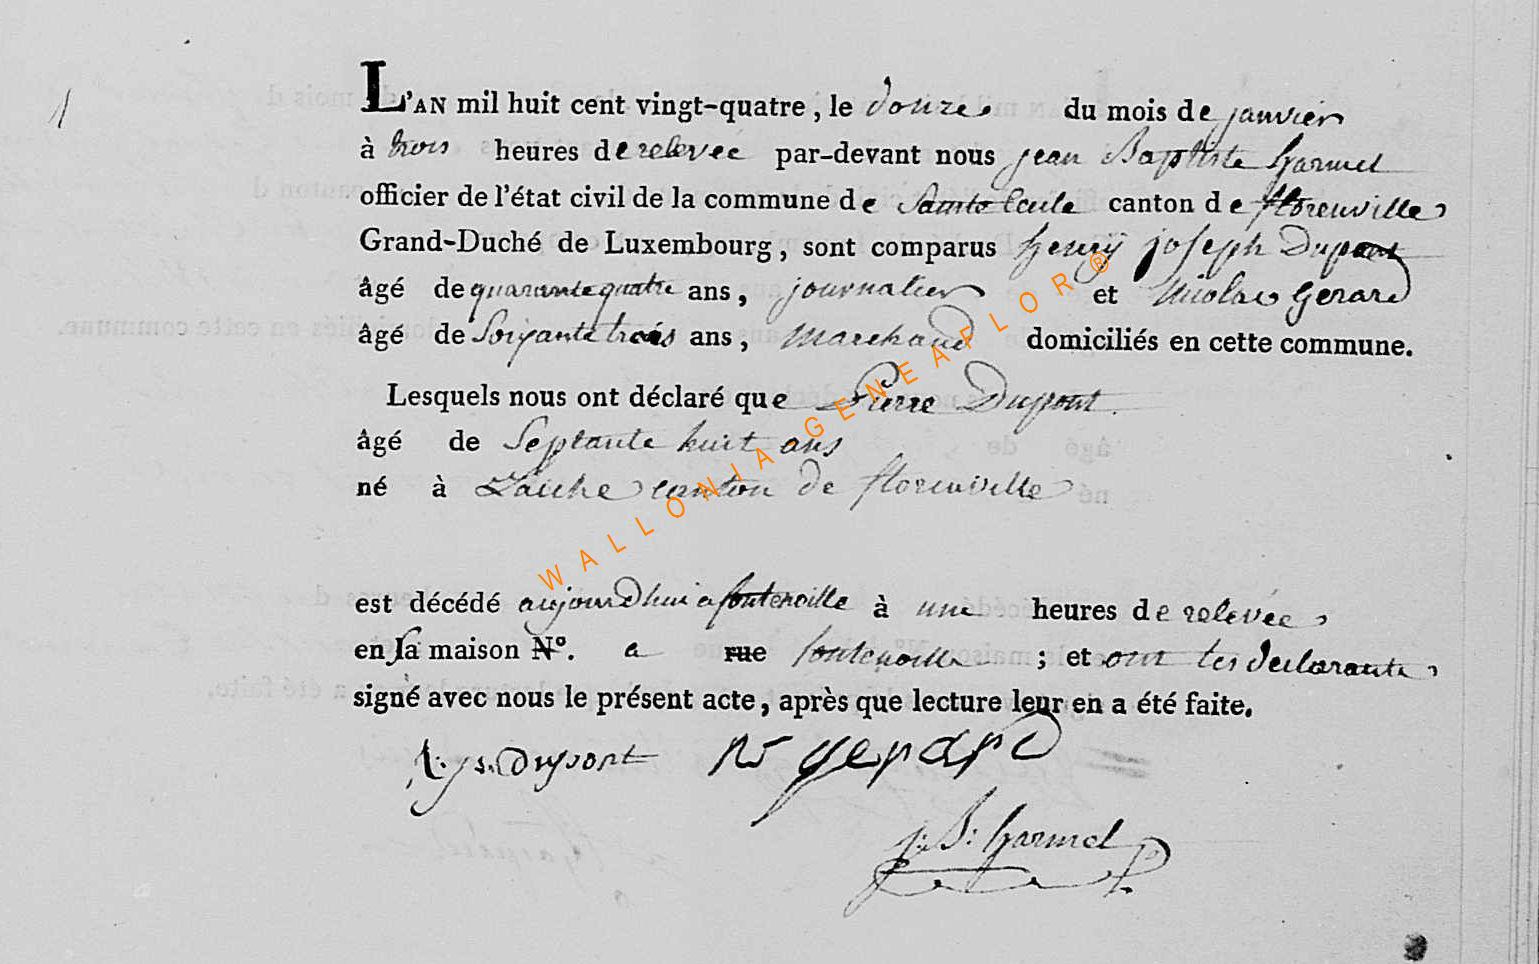 1
L'AN mil huit cent vingt-quatre, le douze du mois de janvier
à trois heures de relevée par-devant nous jean Baptiste harmel
officier de l'état civil de la commune de Sainte Cecile canton de florenville
Grand-Duché de Luxembourg, sont comparus henry joseph Dupont
âgé de quarante quatre ans, journalier et Nicolas Gerard
âgé de Soixante trois ans, Marchand domiciliés en cette commune.
Lesquels nous ont déclaré que Pierre Dupont
âgé de Septante huit ans
né à canton de florenville
est décédé aujourdhui a fontenoille à une heures de relevée
en sa maison N°. a rue fontenoille ; et ont les declarants
signé avec nous le présent acte, après que lecture leur en a été faite.
Dupont N gerard
j: B: harmel
WALLONIA-GENEAFLOR®